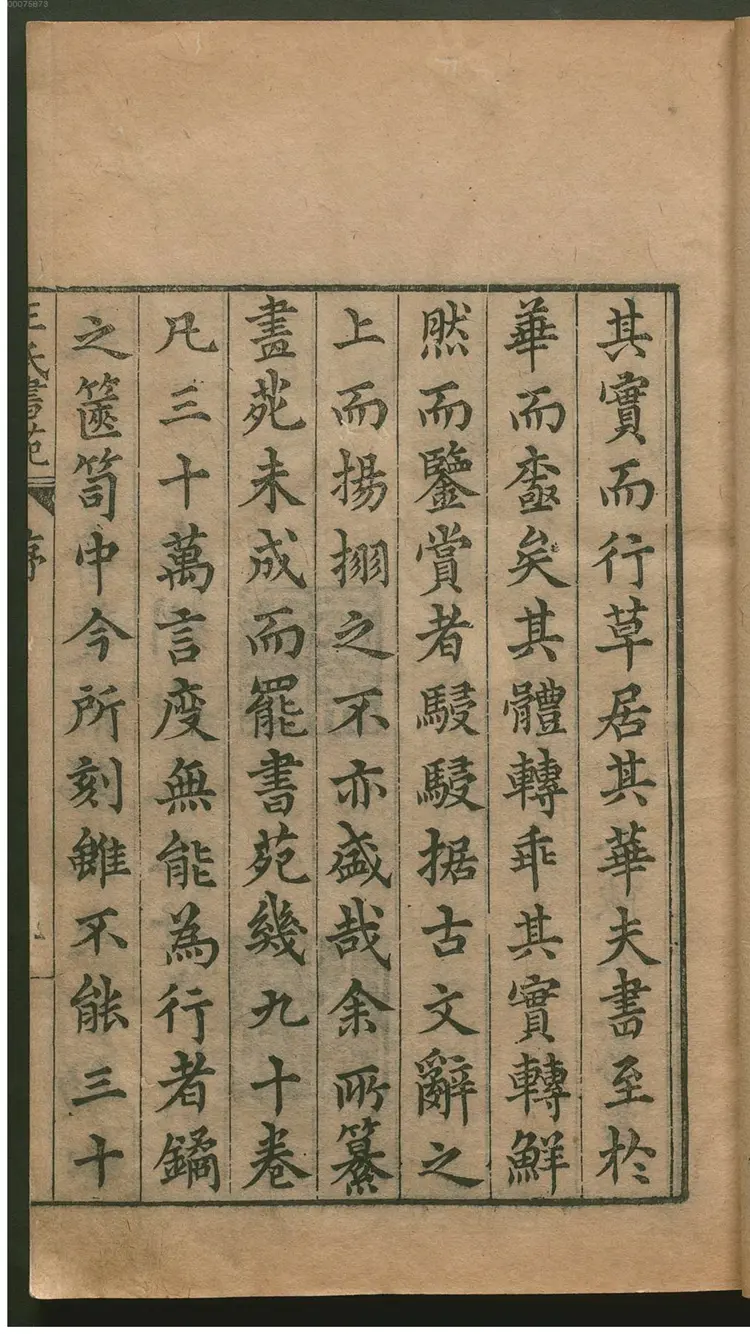 00075873
其實而行草居其華夫書至於
華而極矣其體轉乖其實轉鮮
然而鑒賞者駸駸据古文辭之
上而揚搦之不亦盛哉余所纂
畫苑未成而罷書苑幾九十卷
凡三十萬言度無能為行者鐍
之篋笥中今所刻雖不能三十
王氏書苑 序